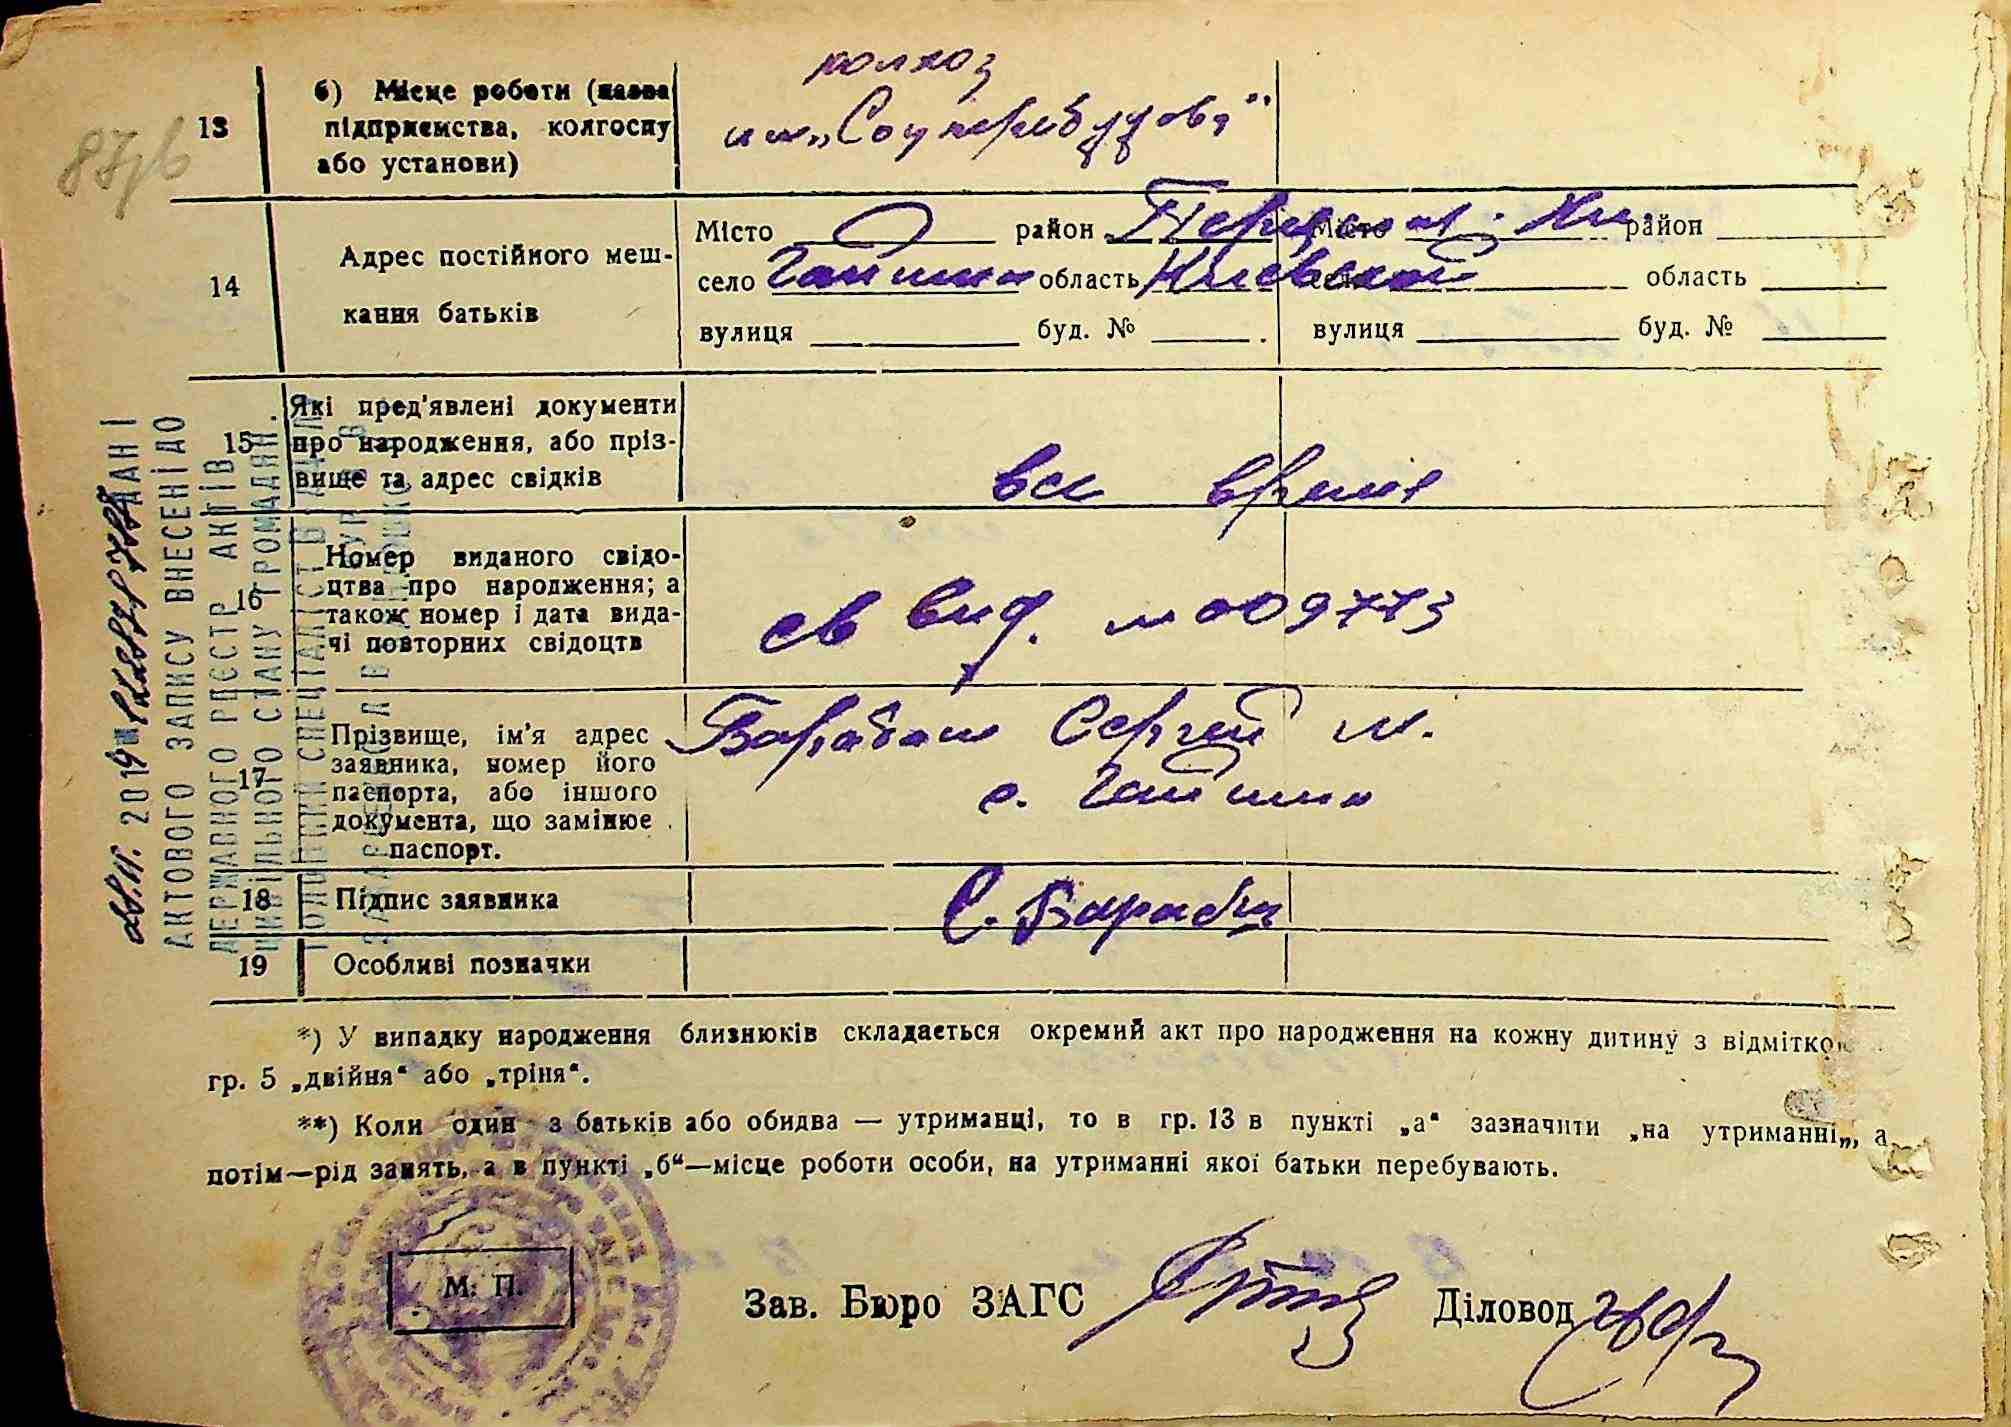 87дв
13
б) Місце роботи (назва
підприємства, колгоспу
або установи)
колхоз
им „Соцперебудова"
14
Адрес постійного меш-
кання батьків
Місто район Переяслав. Хм. Місто район
село Гайшин область Киевской село область
вулиця буд. № . вулиця буд. №
15
Які пред'явлені документи
про народження, або пріз-
вище та адрес свідків
все время
16
Номер виданого свідо-
цтва про народження; а
також номер і дата вида-
чі повторних свідоцтв
св выд. № 009773
17
Прізвище, ім'я адрес
заявника, номер його
паспорта, або іншого
документа, що замінює
паспорт.
Барабаш Сергей М.
с. Гайшин
18
Підпис заявника
С. Барабаш
19
Особливі позначки
ДАНІ
АКТОВОГО ЗАПИСУ ВНЕСЕНІ ДО
ДЕРЖАВНОГО РЕЄСТР АКТІВ
ЦИВІЛЬНОГО СТАНУ ГРОМАДЯН.
ГОЛОВНИЙ СПЕЦІАЛІСТ
*) У випадку народження близнюків складається окремий акт про народження на кожну дитину з відмітко
гр. 5 „двійня" або „тріня".
**) Коли один з батьків або обидва — утриманці, то в гр. 13 в пункті „а" зазначити „на утриманні„, а
потім—рід занять, а в пункті „б"—місце роботи особи, на утриманні якої батьки перебувають.
М. П.
Зав. Бюро ЗАГС Діловод